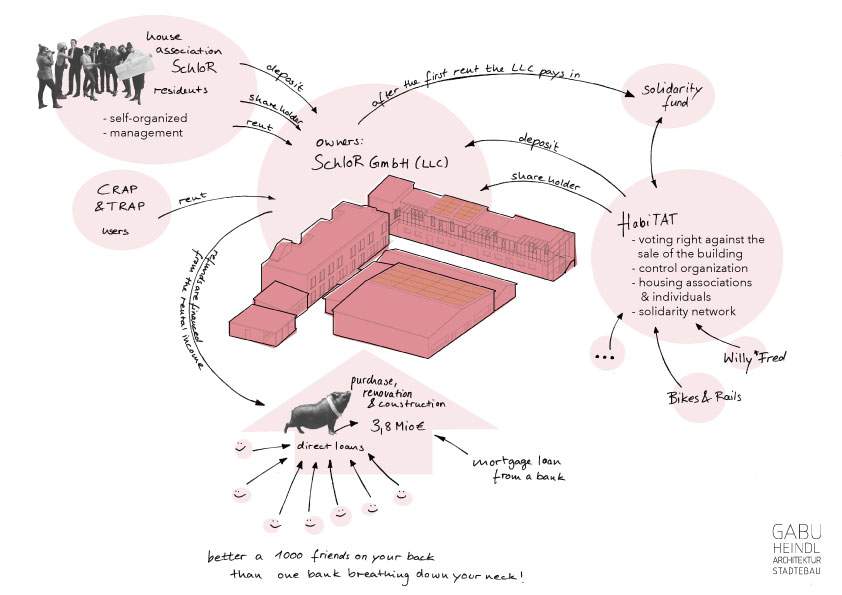 house
association
SchloR
residents
- self-organized
- management
deposit
shareholder
rent
after the first rent the LLC pays in
solidarity
fund
owners:
SchloR GmbH (LLC)
deposit
share holder
CRAP
& TRAP
users
rent
HabiTAT
- voting right against the
sale of the building
- control organization
- housing associations
& individuals
- solidarity network
refunds are financed
from the rental income
...
Willy*Fred
Bikes & Rails
purchase,
renovation
& construction
3,8 Mio €
direct loans
mortgage loan
from a bank
better a 1000 friends on your back
than one bank breathing down your neck!
GABU
HEINDL
ARCHITEKTUR
STADTEBAU